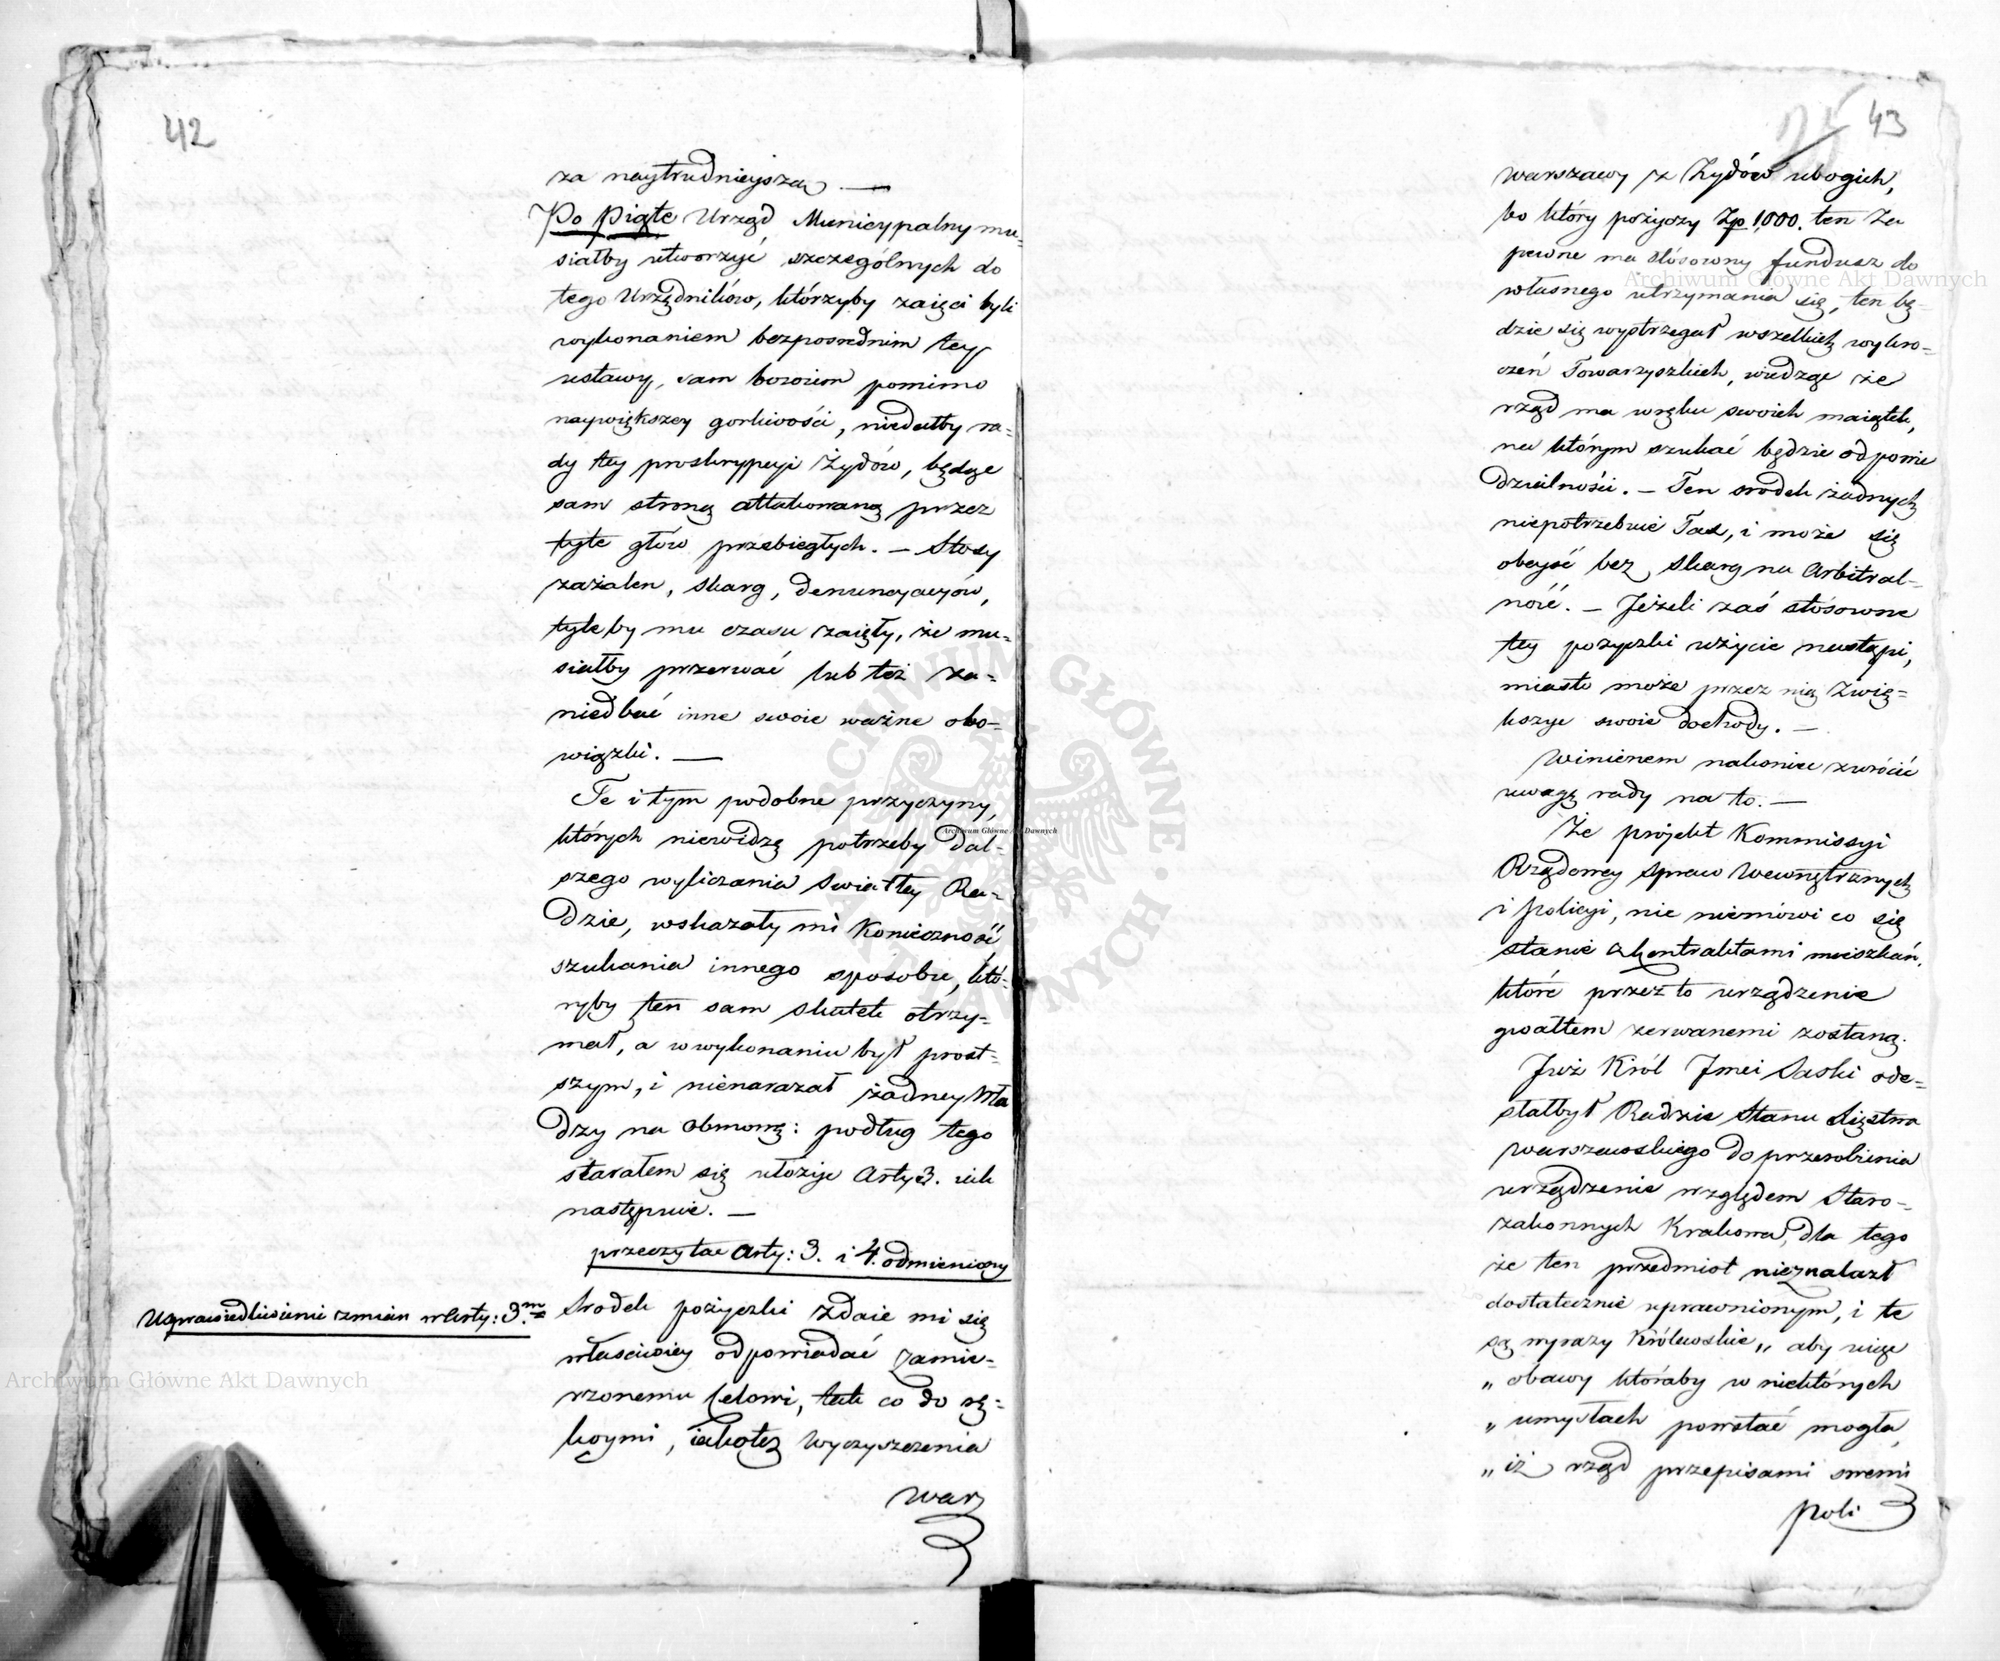 42
za naytrudnieyszą. —
Po Piąte Urząd Municypalny mu=
siałby utworzyć szczególnych do
tego Urzędników, którzyby zaięci byli
wykonaniem bezposrednim tey
ustawy, sam bowiem pomimo
naywiększey gorliwości, niedałby ra=
dy tey proskrypcyi Żydów, będąc
sam stroną attakowaną przez
tyle głów przebiegłych. — Stosy
zażalen, skarg, denuncyacyów,
tyle by mu czasu zaięły, że mu=
siałby przerwać lub też za=
niedbać inne swoie ważne obo=
wiązki. —
Te i tym podobne przyczyny,
których niewidzę potrzeby dal=
szego wyliczania Swiatłey Ra=
dzie, wskazały mi Konieczność
szukania innego sposobu, któ=
ryby ten sam skutek otrzy=
mał, a w wykonaniu był prost=
szym, i nienarazał żadney Wła
dzy na obmowę: podług tego
starałem się ułożyć Arty 3. iak
następuie. —
przeczytac Arty: 3. i 4. odmieniony
Usprawiedliwienie zmian w Arty: 3.m
Srodek pożyczki zdaie mi się
właściwiey odpowiadać zamie=
rzonemu Celowi, tak co do rę=
koymi, iakoteż wyczyszczenia
War
43
Warszawy z Żydów ubogich,
bo który pożyczy Zp. 1,000. ten za
pewne ma stósowny fundusz do
własnego utrzymania się, ten bę=
dzie się wystrzegał wszelkich wykro=
czeń Towarzyskich, widząc że
rząd ma w ręku swoich maiątek,
na którym szukać będzie odpowie
dzialności. — Ten srodek żadnych
niepotrzebuie Tax, i może się
obeyść bez skarg na Arbitral=
ność. — Jeżeli zaś stósowne
tey pożyczki użycie nastąpi,
miasto może przez nią zwię=
kszyć swoie dochody. —
Winienem nakoniec zwrócić
uwagę rady na to. —
Że projekt Kommissyi
Rządowey Spraw Wewnętrznych
i Policyi, nic niemówi co się
stanie z kontraktami mieszkań,
które przez to urządzenie
gwałtem zerwanemi zostaną.
Już Król Jmci Saski ode=
słałbył Radzie Stanu Xięstwa
Warszawskiego do przerobienia
urządzenie względem Staro=
zakonnych Krakowa, dla tego
że ten przedmiot nieznalazł
dostatecznie uprawnionym, i te
są wyrazy Królewskie „ aby więc
„ obawy któraby w niektórych
„ umysłach powstać mogła,
„ iż rząd przepisami swemi
poli
Archiwum Główne Akt Dawnych
Archiwum Główne Akt Dawnych
Archiwum Główne Akt Dawnych
ARCHIWUM GŁÓWNE AKT DAWNYCH